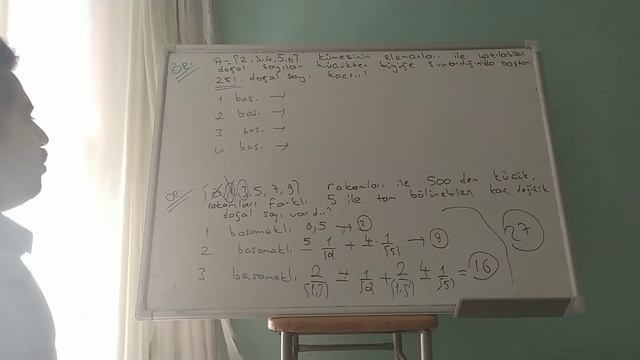 ÖR: A={2,3,4,5,6} kümesinin elemanları ile yazılabilen
doğal sayılar küçükten büyüğe sıralandığında baştan
251. doğal sayı kaçtır?
1 bas. →
2 bas. →
3 bas. →
4 bas. →
ÖR: 3, 5, 7, 9} rakamları ile 500 den küçük,
rakamları farklı 5 ile tam bölünebilen kaç değişik
doğal sayı vardır?
1 basamaklı 0,5 → 2
2 basamaklı 5 1 + 4 1 → 9
3 basamaklı 2 4 1 + 2 4 1 = 16
27